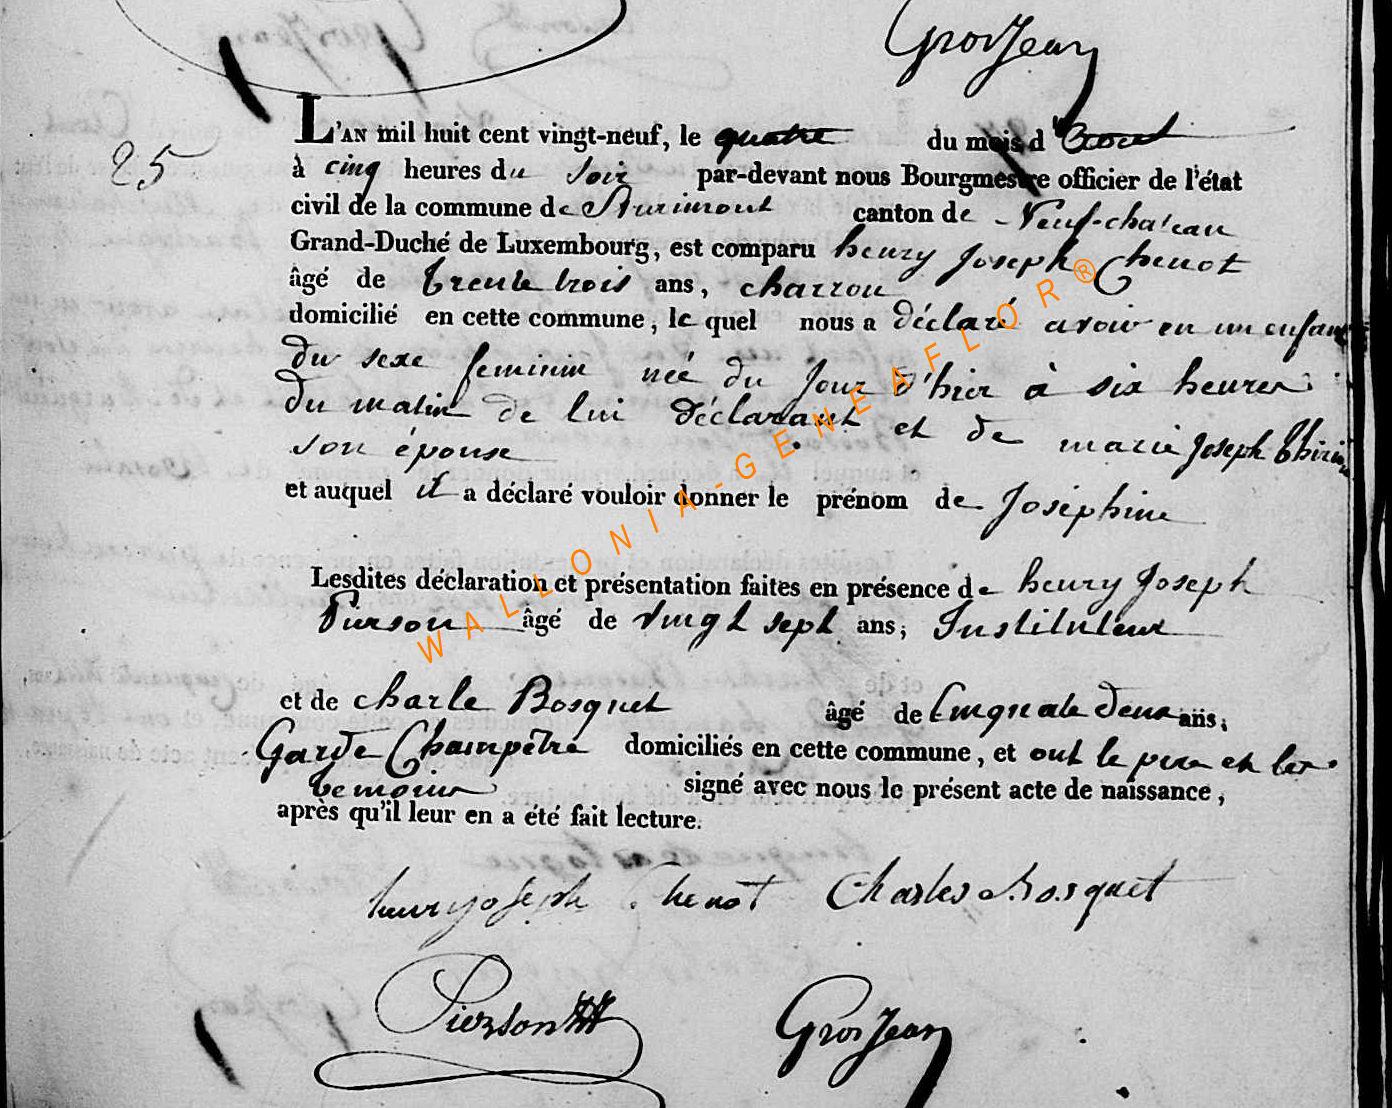 GrosJean
25
L'AN mil huit cent vingt-neuf, le quatre du mois d'Aout
à cinq heures du soir par-devant nous Bourgmestre officier de l'état
civil de la commune de Assenois canton de Neuf-chateau
Grand-Duché de Luxembourg, est comparu henry Joseph Chenot
âgé de trente trois ans, charron
domicilié en cette commune, le quel nous a déclaré avoir eu un enfant
du sexe feminin née du Jour d'hier à six heures
du matin de lui déclarant et de marie Joseph Thirion
son épouse
et auquel il a déclaré vouloir donner le prénom de Joséphine
Lesdites déclaration et présentation faites en présence de henry Joseph
Pierson âgé de vingt sept ans, Instituteur
et de charle Bosquet âgé de Cinquate deux ans,
Garde Champêtre domiciliés en cette commune, et ont le pere et les
temoins signé avec nous le présent acte de naissance,
après qu'il leur en a été fait lecture.
henry joseph Chenot Charles Bosquet
Pierson GrosJean
WALLONIA-GENEAFLOR®